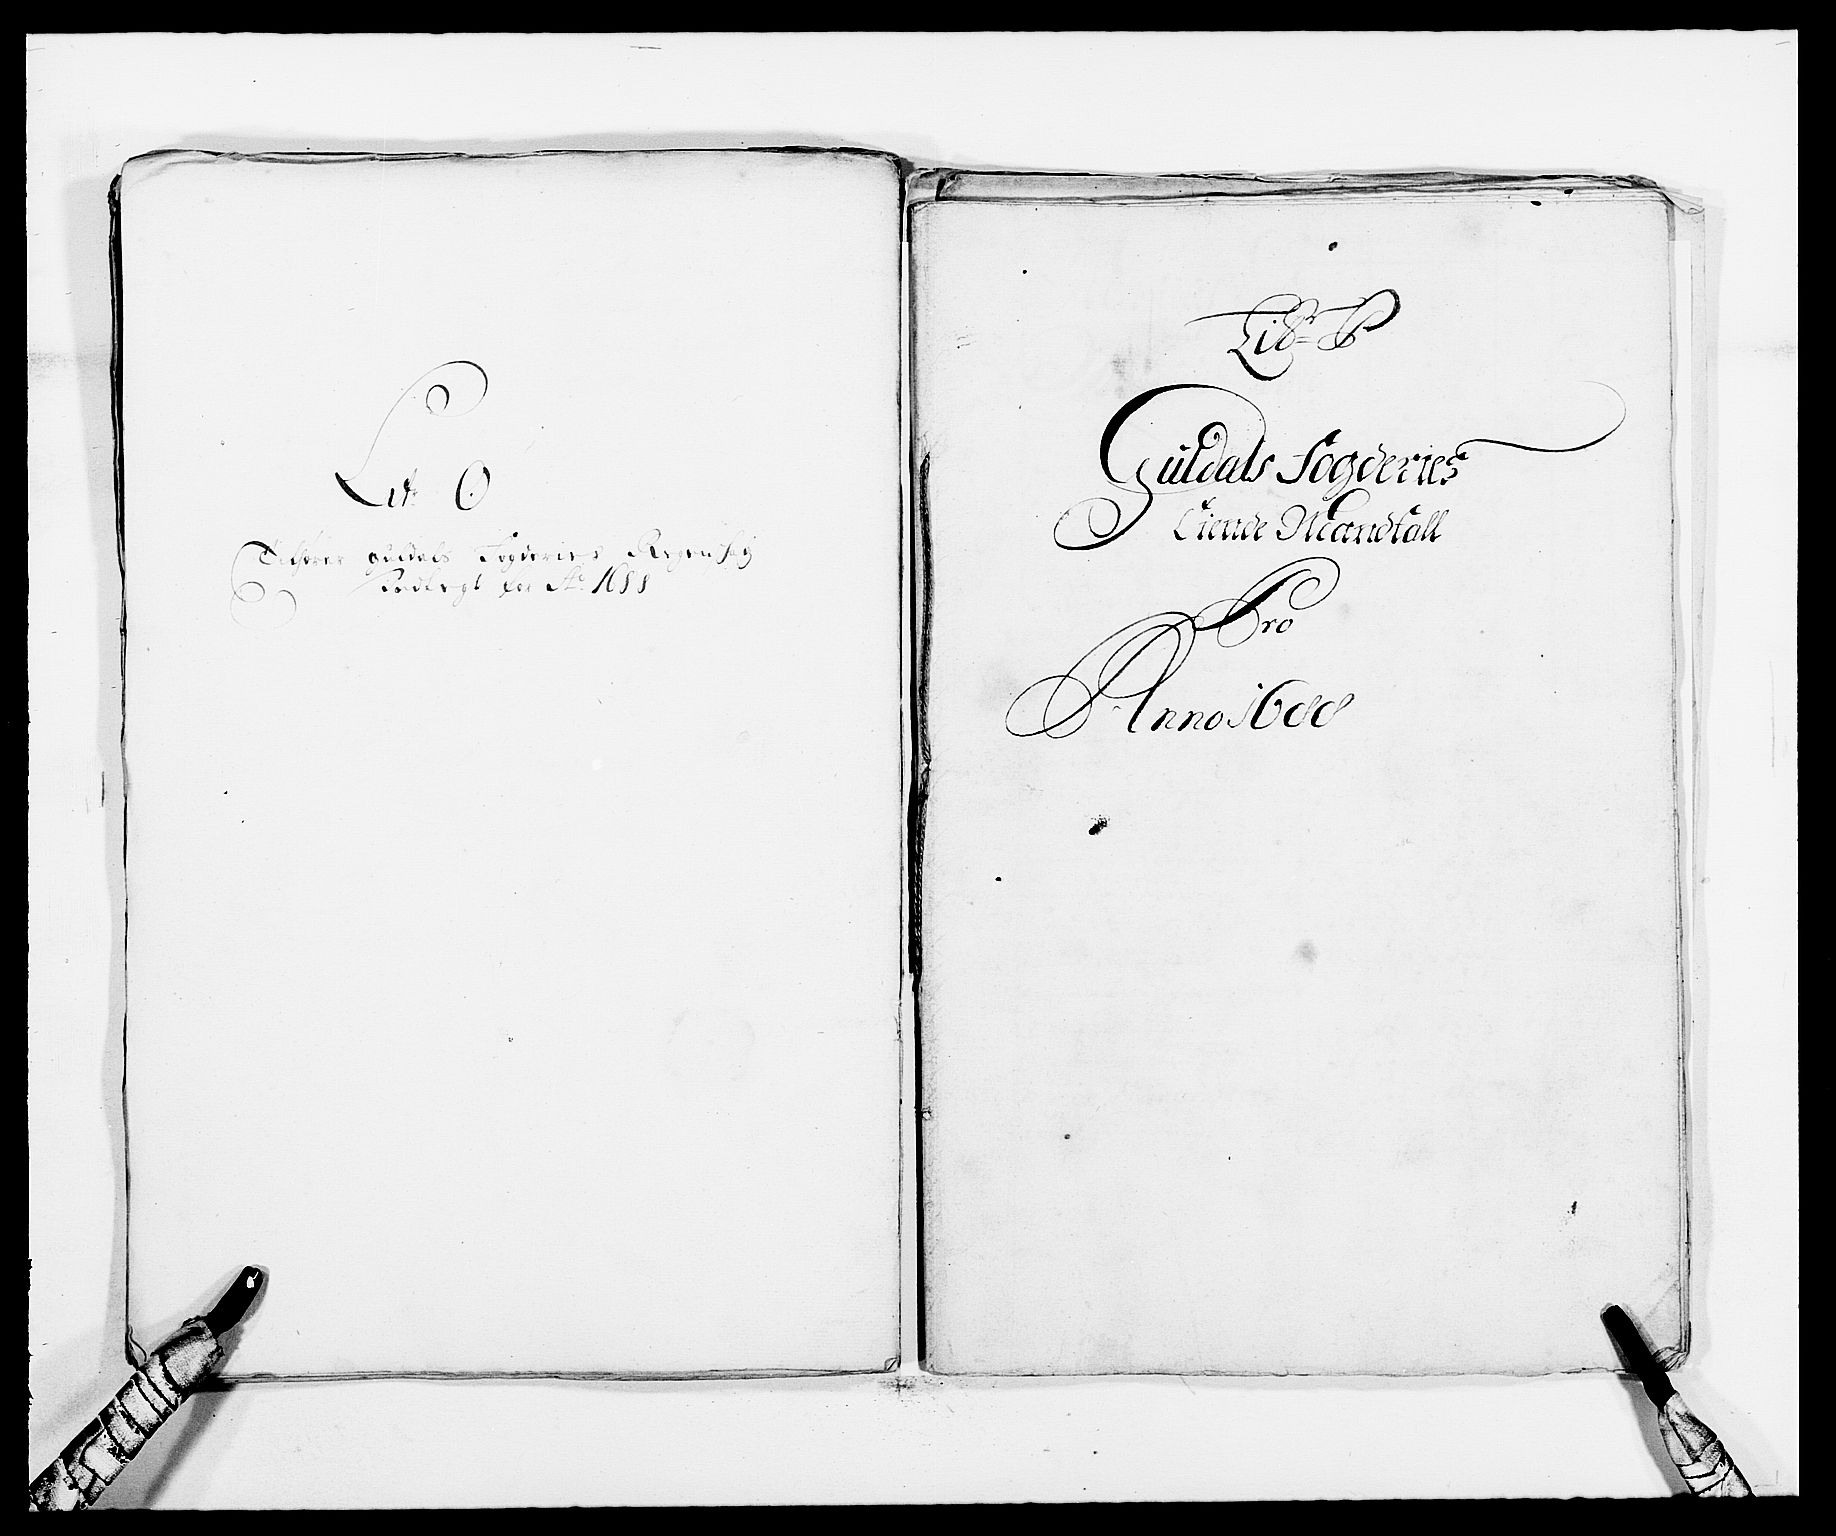 Lit. O
Tilhører Guldals Fogderies Regenskab
Indlegt for Ao. 1688
Litr. P
Guldals Fogderies
Tiende Mandtall
Pro
Anno 1688